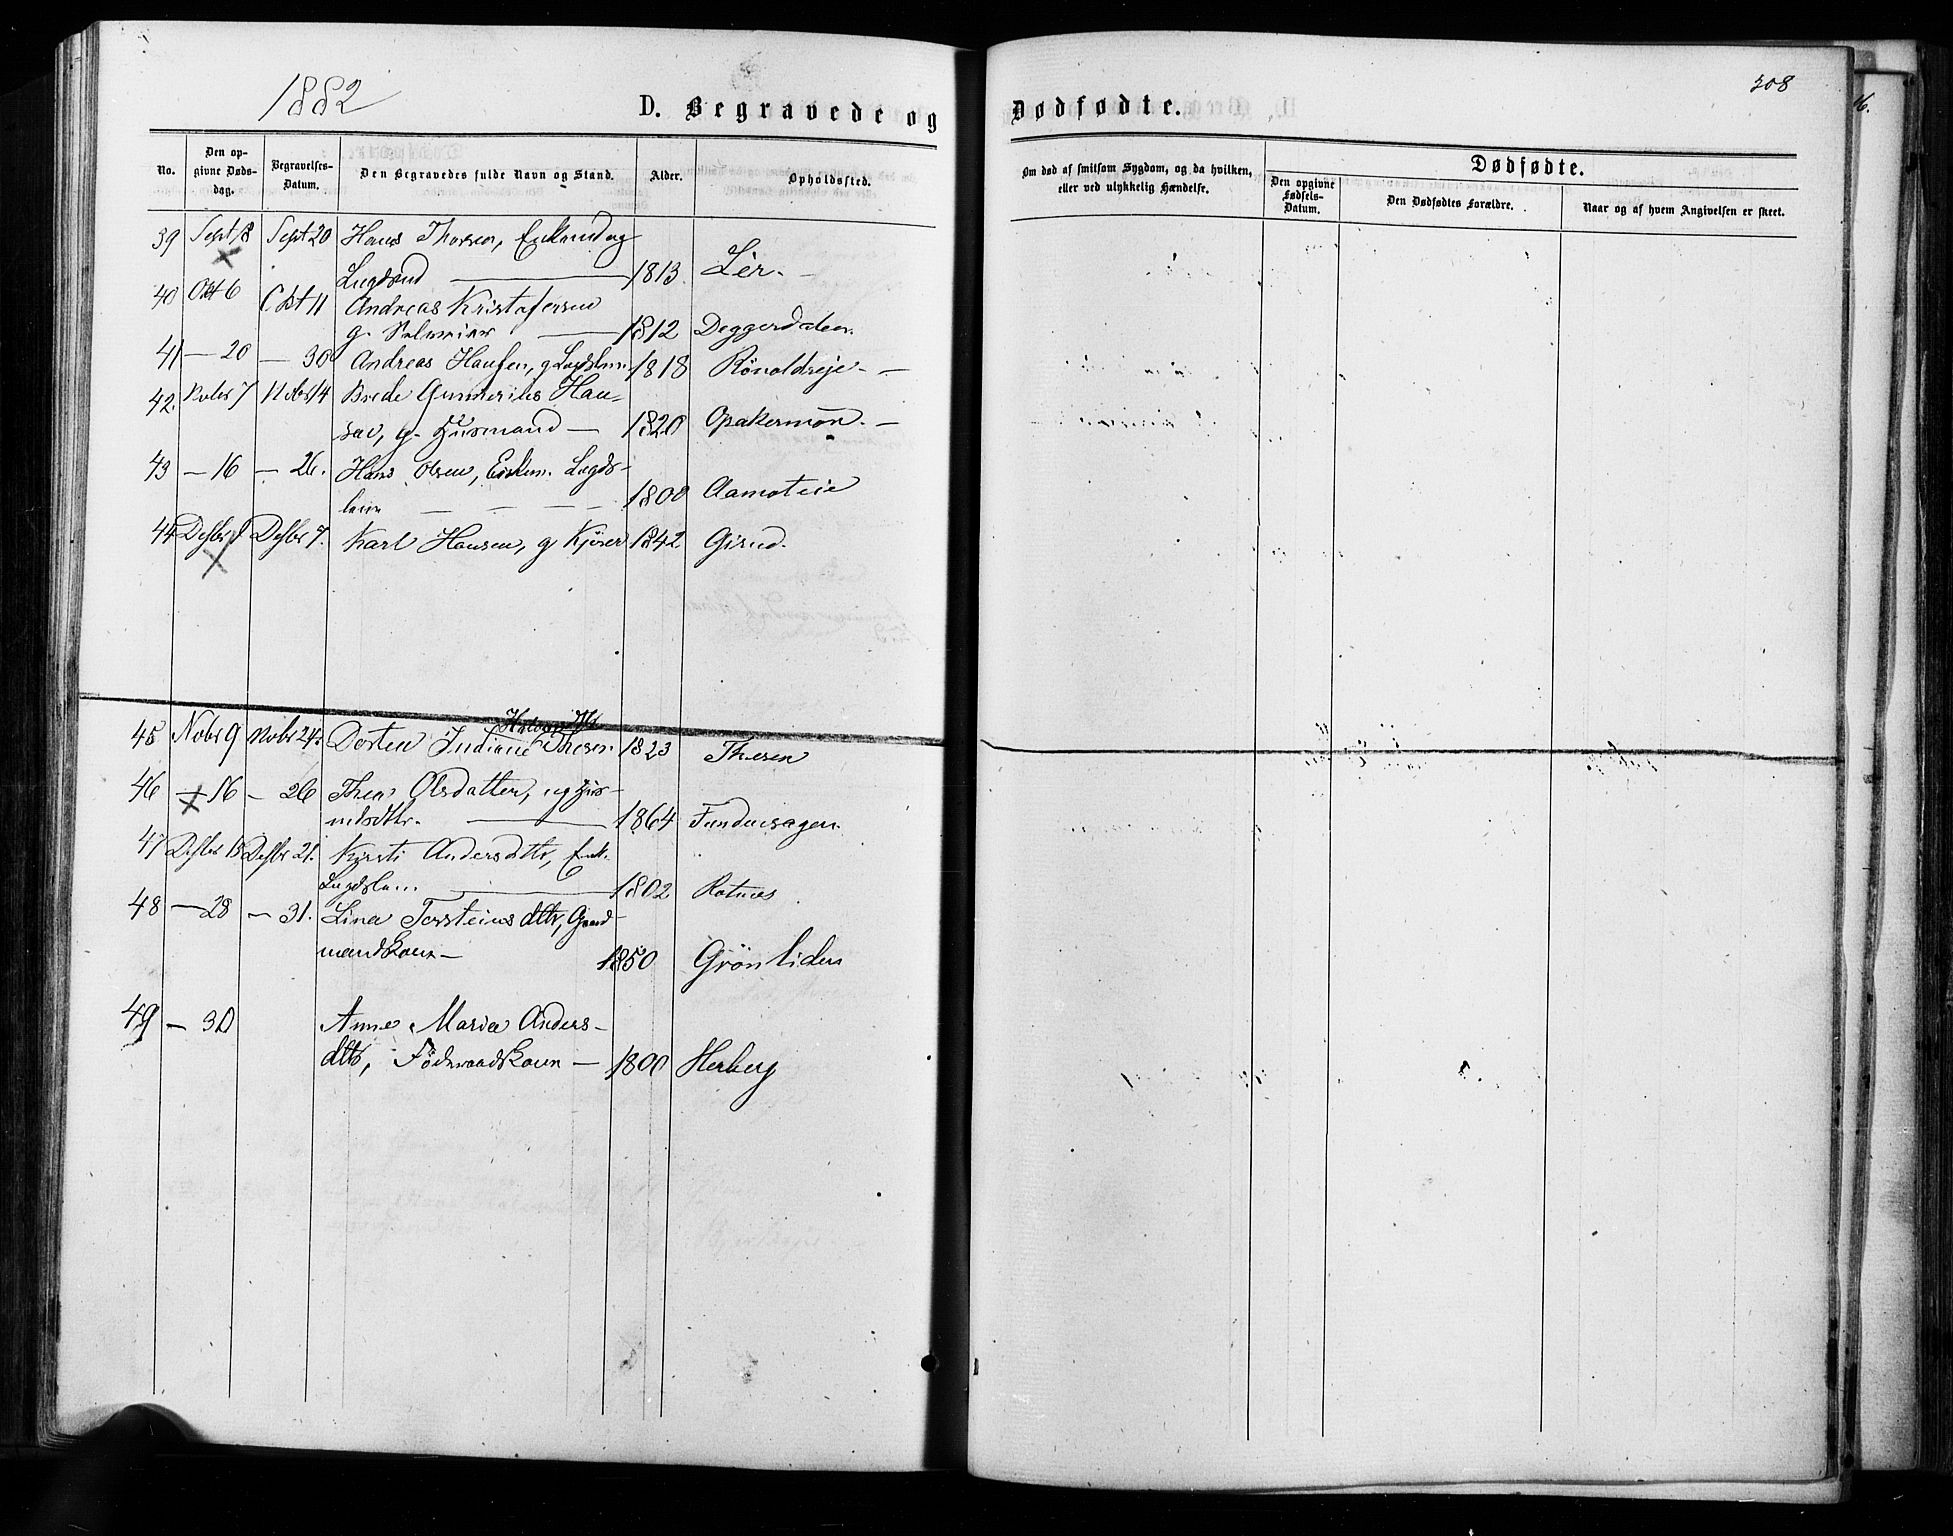 1882
D. Begravede og
Dødfødte.
308
No.
Den op-
givne Døds-
dag.
Begravelses-
Datum.
Den Begravedes fulde Navn og Stand.
Alder.
Opholdssted.
Om død af smitsom Sygdom, og da hvilken,
eller ved ulykkelig Hændelse.
Dødfødte.
Den opgivne
Fødsels-
Datum.
Den Dødfødtes Forældre.
Naar og af hvem Angivelsen er skeet.
39 Sept 18 Sept 20 Hans Thorsen, Enkemd og
Lægdslmd 1813 Lier.
40 Okt 6 Okt 11 Andreas Kristofersen
g. 1812 Deggerdalen.
41 — 20 — 30 Andreas Hansen, g Lægdslem 1818
42. Nobr 7 Nobr 14 Brede Gunnerius Han-
sen, g. Husmand — 1820 Opakermoen. —
43 — 16 — 26. Hans Olsen, Enkem. Lægds-
lem — — — — 1800 Aamoteie
44 Desbr 1 Desbr 7. Karl Hansen, g Kjører 1842 Gisrud.
45 Nobr 9 Nobr 24. Dorten Indiane Thesen 1823 Thesen
46 — 16 — 26 Thea Olsdatter, ug Hus-
mdsdtr. — 1864
47 Desbr 15 Desbr 21. Kirsti Andersdtr, Enk.
Lægdslem — 1802 Rotnes
48 — 28 — 31. Lina Torsteinsdtr, Gaard-
mandskone — 1850 Grönliden
49 — 30 Anne Maria Anders-
dtr, Föderaadskone — 1800 Herberg